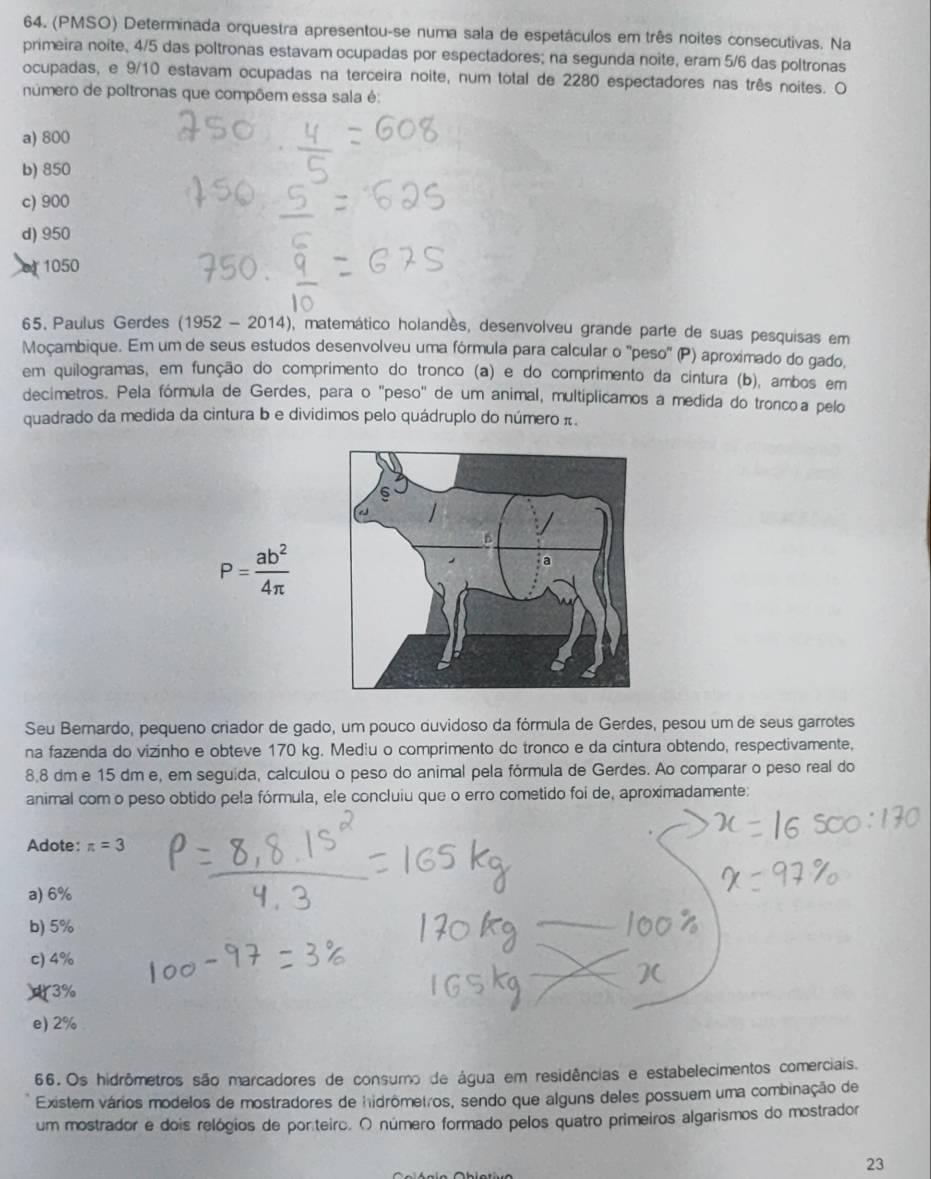 64. (PMSO) Determinada orquestra apresentou-se numa sala de espetáculos em três noites consecutivas. Na
primeira noite, 4/5 das poltronas estavam ocupadas por espectadores; na segunda noite, eram 5/6 das poltronas
ocupadas, e 9/10 estavam ocupadas na terceira noite, num total de 2280 espectadores nas três noites. O
número de poltronas que compõem essa sala é:
a) 800
b) 850
c) 900
d) 950
e) 1050
750 . 4/5 = 608
750 . 5/6 = 625
750 . 9/10 = 675
65. Paulus Gerdes (1952 - 2014), matemático holandês, desenvolveu grande parte de suas pesquisas em
Moçambique. Em um de seus estudos desenvolveu uma fórmula para calcular o "peso" (P) aproximado do gado,
em quilogramas, em função do comprimento do tronco (a) e do comprimento da cintura (b), ambos em
decimetros. Pela fórmula de Gerdes, para o "peso" de um animal, multiplicamos a medida do tronco a pelo
quadrado da medida da cintura b e dividimos pelo quádruplo do número π.
P = ab²/4π
b
a
Seu Bernardo, pequeno criador de gado, um pouco duvidoso da fórmula de Gerdes, pesou um de seus garrotes
na fazenda do vizinho e obteve 170 kg. Mediu o comprimento do tronco e da cintura obtendo, respectivamente,
8,8 dm e 15 dm e, em seguida, calculou o peso do animal pela fórmula de Gerdes. Ao comparar o peso real do
animal com o peso obtido pela fórmula, ele concluiu que o erro cometido foi de, aproximadamente:
Adote: π = 3
a) 6%
b) 5%
c) 4%
d) 3%
e) 2%
P = 8,8 . 15²/4 . 3 = 165 kg
170 kg — 100%
165 kg — x
x = 16 500 : 170
x = 97%
100 - 97 = 3%
66. Os hidrômetros são marcadores de consumo de água em residências e estabelecimentos comerciais.
Existem vários modelos de mostradores de hidrômetros, sendo que alguns deles possuem uma combinação de
um mostrador e dois relógios de ponteiro. O número formado pelos quatro primeiros algarismos do mostrador
23
Colégio Objetivo